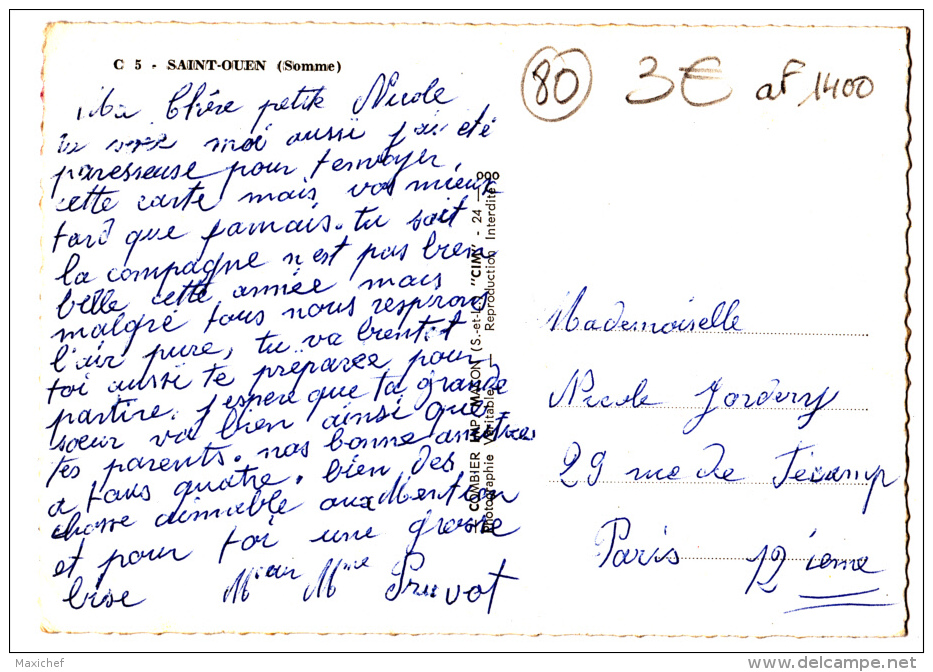 C 5 - SAINT-OUEN (Somme)
80
3€
af 1400
Ma Chére petite Nicole
tu vois moi aussi j'ai été
paresseuse pour t'envoyer
cette carte mais vos mieux
tard que jamais. tu sait
la compagne n'est pas bien
belle cette année mais
malgré tous nous respirons
l'air pure, tu va bientôt
toi aussi te préparée pour
partire. j'espere que ta grande
soeur va bien ainsi que
tes parents. nos bonne amitiées
a tous quatre. bien des
chosse aimable aux Mention
et pour toi une grosse
bise Mr Mme Pruvot
COMBIER IMP. MACON (S.-et-L.) "CIM" - 24
Photographie Véritable — Reproduction Interdite
Mademoiselle
Nicole Jordery
29 rue de Fécamp
Paris 12 ième
Maxichef
www.delcampe.net